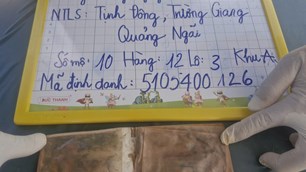 NTLS: Tịnh Đông, Trường Giang
Quảng Ngãi
Số mộ: 10 Hàng: 12 Lô: 3 Khu A
Mã định danh: 5105400 126